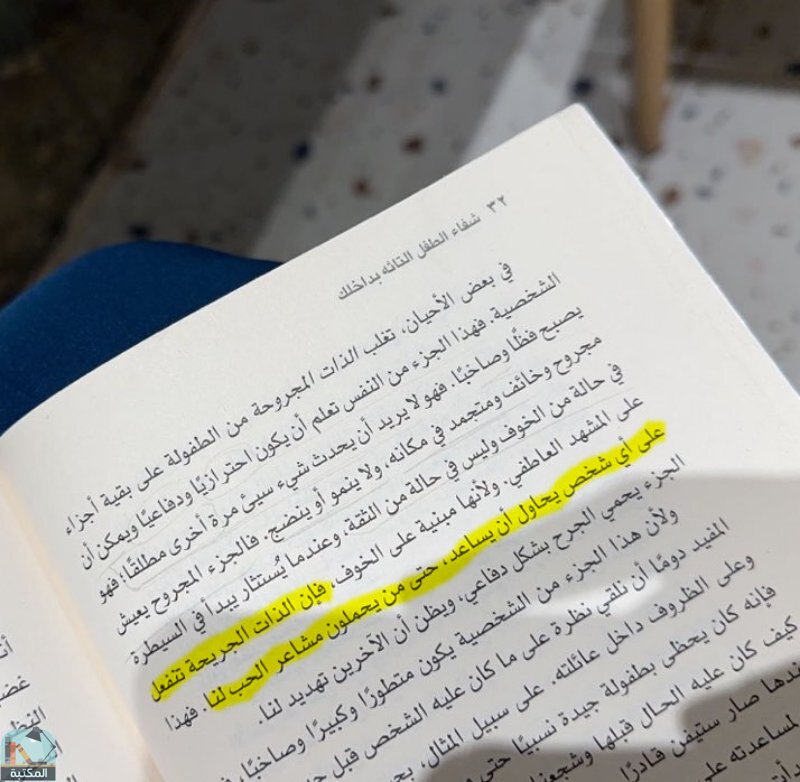 ٣٢ شفاء الطفل التائه بداخلك
في بعض الأحيان، تغلب الذات المجروحة من الطفولة على بقية أجزاء
الشخصية. فهذا الجزء من النفس تعلم أن يكون احترازيًا ودفاعيًا ويمكن أن
يصبح فظًا وصاخبًا. فهو لا يريد أن يحدث شيء سيئ مرة أخرى مطلقًا؛ فهو
مجروح وخائف ومتجمد في مكانه، ولا ينمو أو ينضج، فالجزء المجروح يعيش
في حالة من الخوف وليس في حالة من الثقة، وعندما يُستثار يبدأ في السيطرة
على المشهد العاطفي. ولأنها مبنية على الخوف، فإن الذات الجريحة تنفعل
على أي شخص يحاول أن يساعد، حتى من يحملون مشاعر الحب لنا. فهذا
الجزء يحمي الجرح بشكل دفاعي، ويظن أن الآخرين تهديد لنا.
ولأن هذا الجزء من الشخصية يكون متطورًا وكبيرًا وصاخبًا،
المفيد دومًا أن نلقي نظرة على ما كان عليه الشخص قبل
وعلى الظروف داخل عائلته. على سبيل المثال،
فإنه كان يحظى بطفولة جيدة نسبيًا حتى
كيف كان عليه الحال قبلها
صار ستيفن قادرًا
لمساعدته على
المكتبة